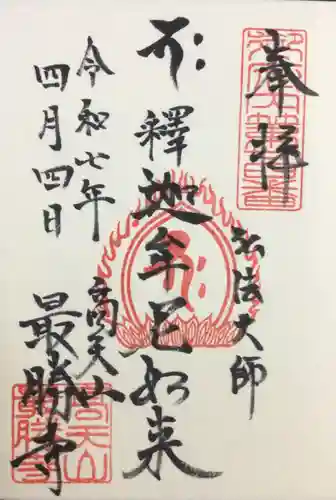 奉拝
弘法大師
釋迦牟尼如来
高天山
最勝寺
令和七年
四月四日